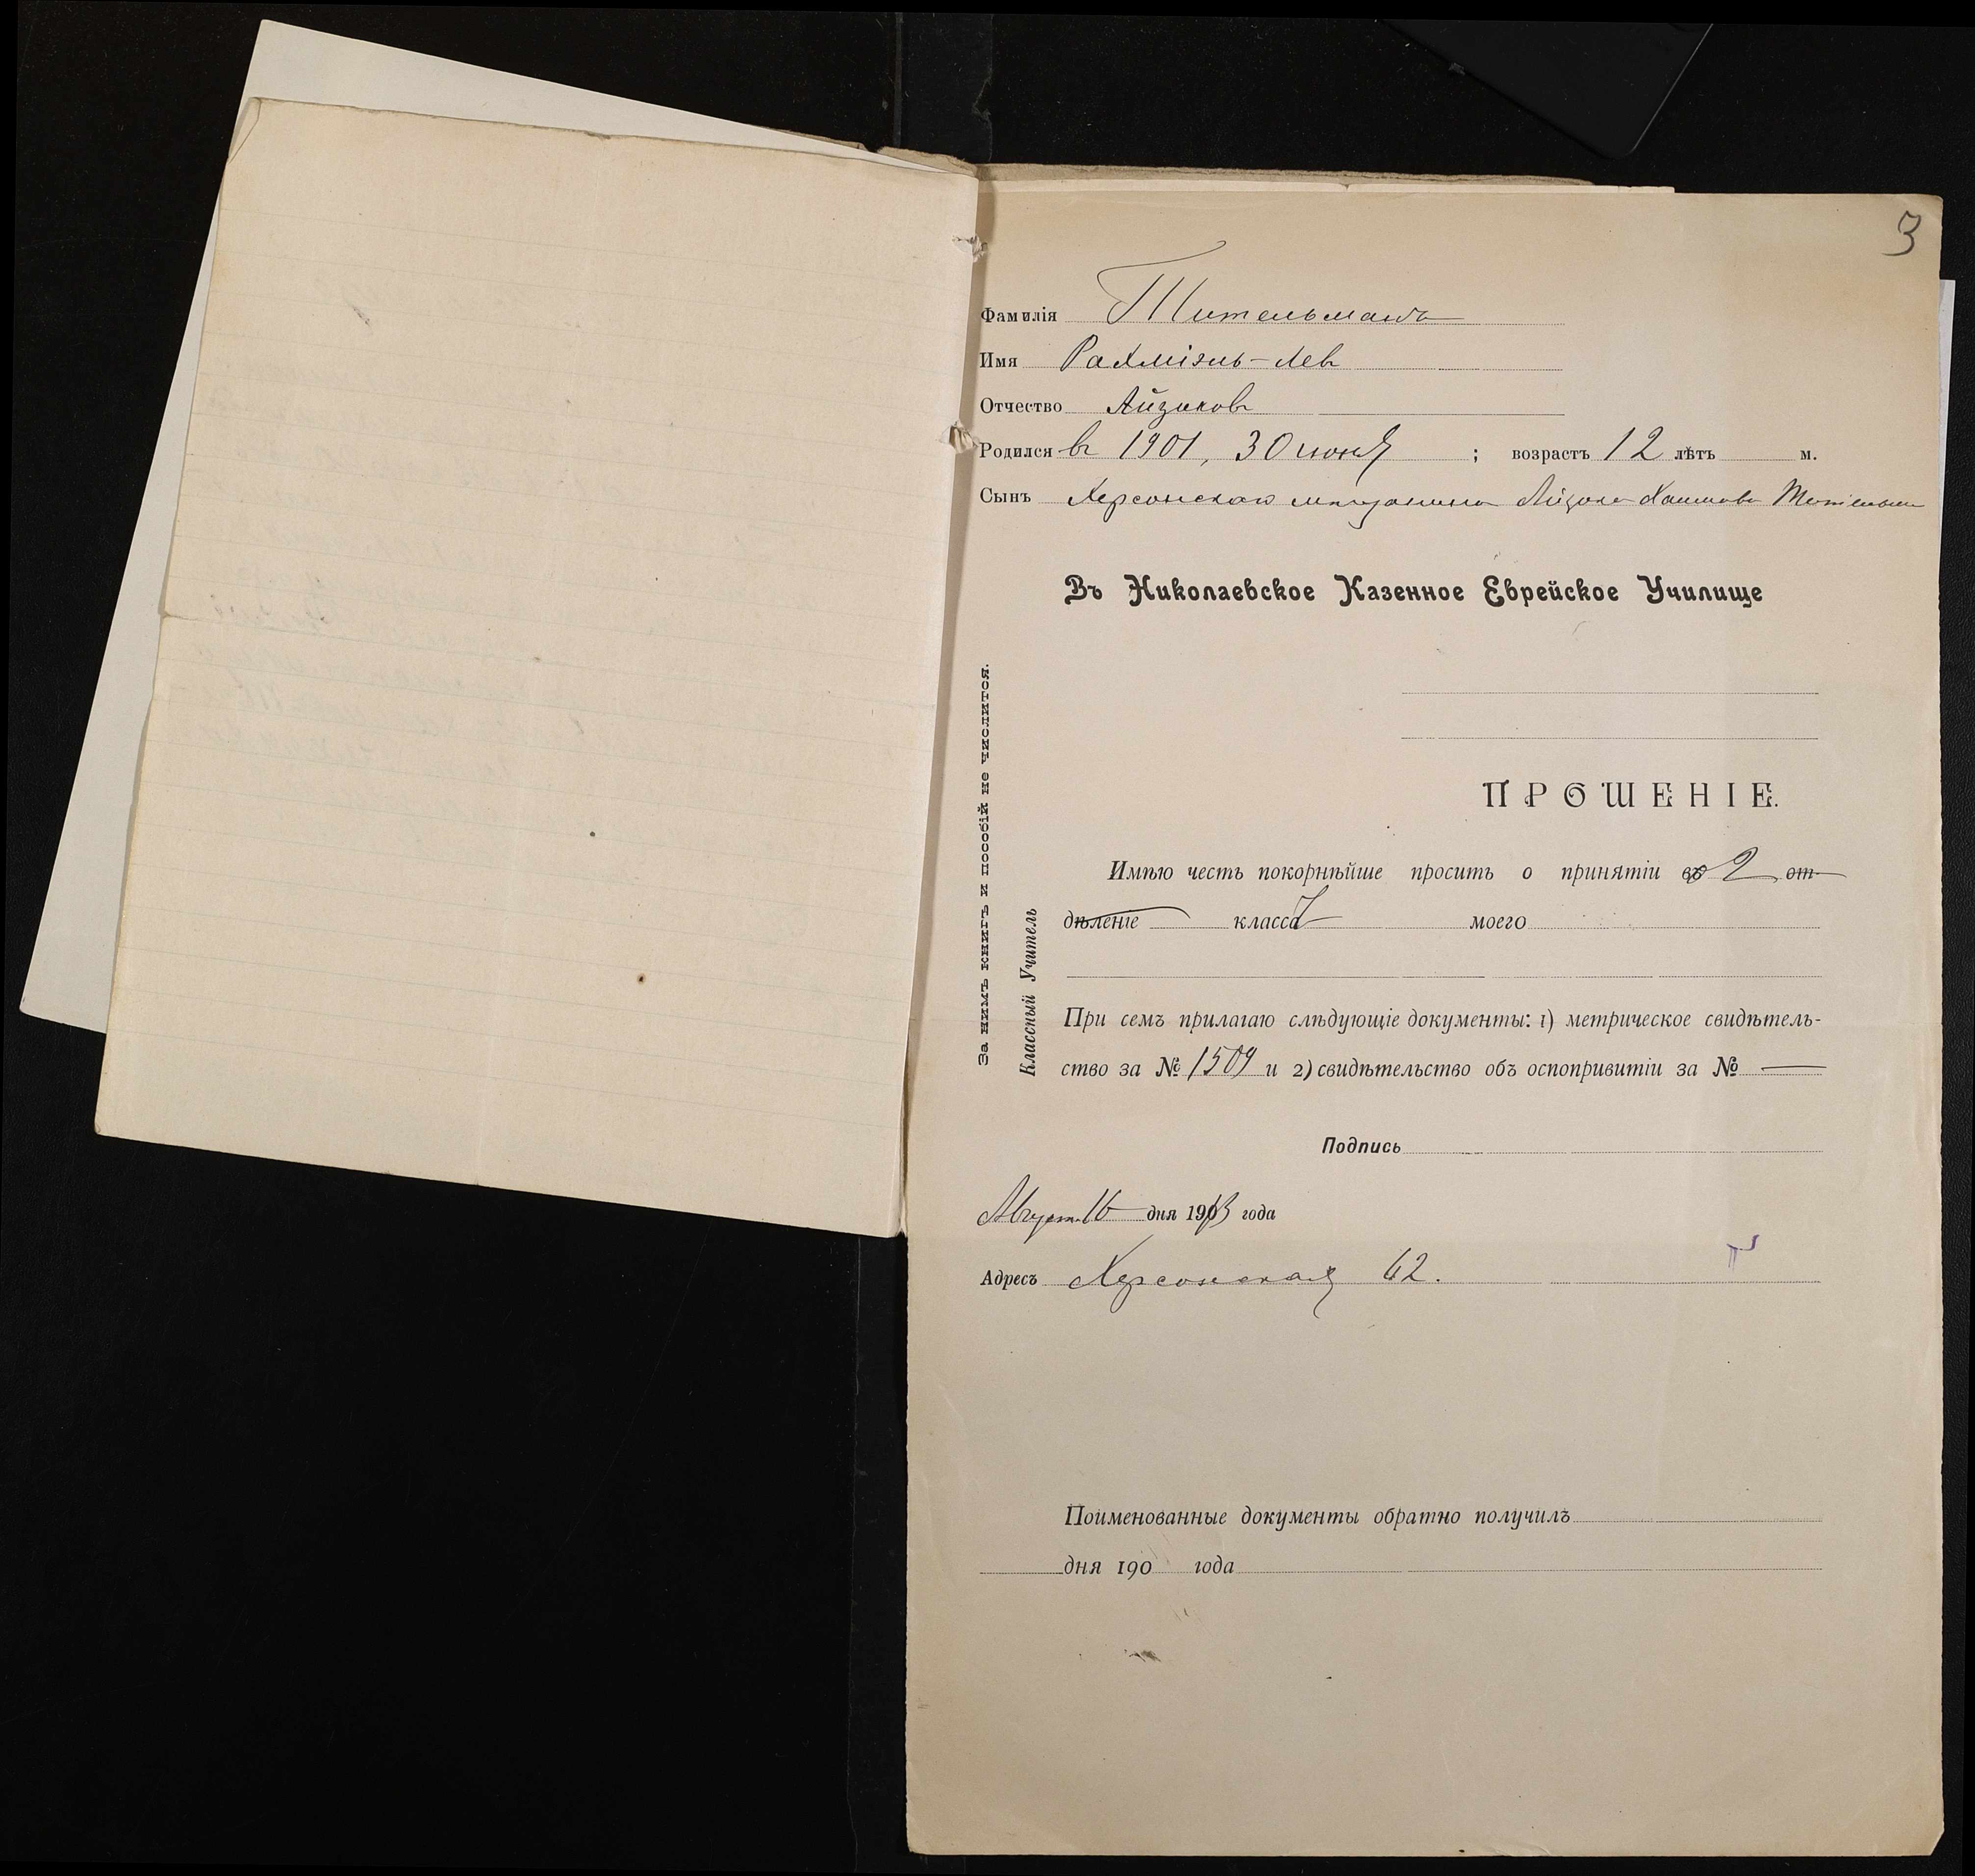 3
Фамилія Тительманъ
Имя Рахміэль-Лев
Отчество Айзиковъ
Родился въ 1901, 30 июня ; возрастъ 12 лѣтъ м.
Сынъ Херсонскаго мещанина Айзика Хаимова Тительман
Въ Николаевское Казенное Еврейское Училище
ПРОШЕНІЕ.
Имѣю честь покорнѣйше просить о принятіи во 2 от-
дѣленіе класса моего
При семъ прилагаю слѣдующіе документы: 1) метрическое свидѣтель-
ство за № 1509 и 2) свидѣтельство объ оспопривитіи за № —
Подпись
Август. 16 дня 1913 года
Адресъ Херсонская 62.
Поименованные документы обратно получилъ
дня 190 года
За нимъ книгъ и пособій не числится.
Классный Учитель